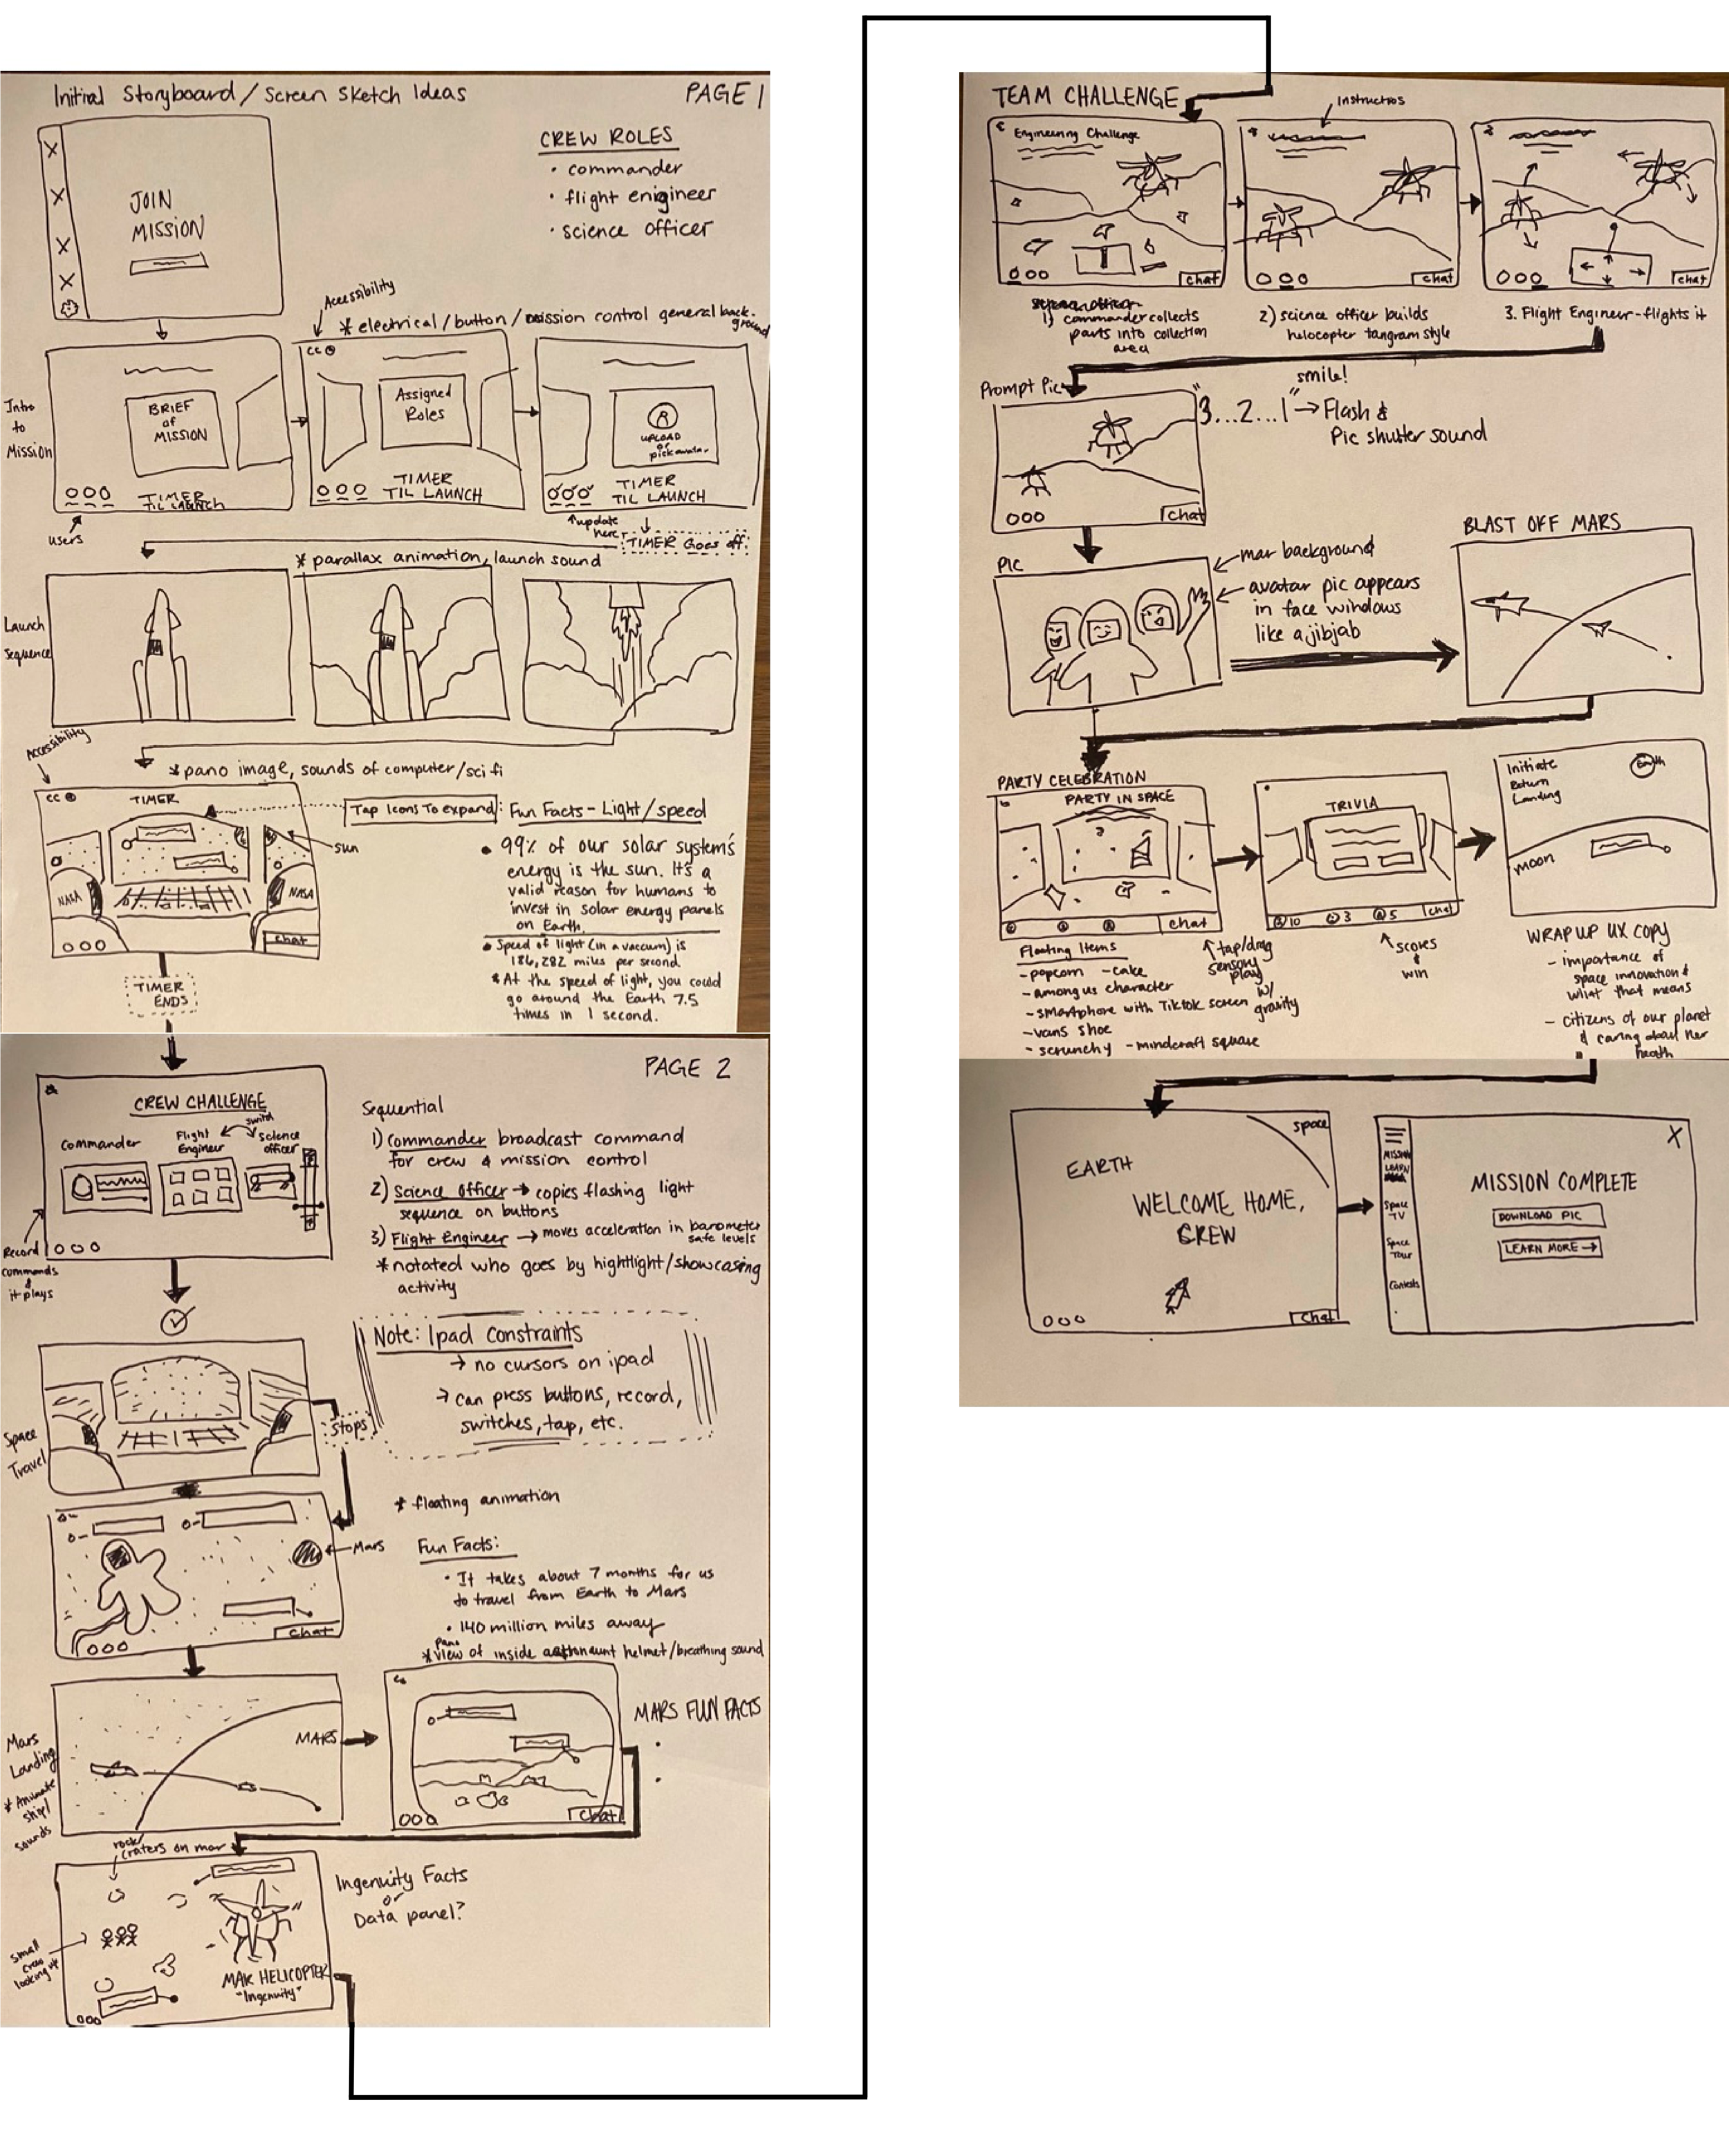 Initial Storyboard/Screen Sketch Ideas
PAGE 1
JOIN
MISSION
CREW ROLES
· commander
· flight enigineer
· science officer
Accessibility
* electrical/button/mission control general back-
ground
Intro
to
Mission
BRIEF
of
MISSION
TIMER
TIL LAUNCH
users
CC
Assigned
Roles
TIMER
TIL LAUNCH
UPLOAD
or
pick avatar
TIMER
TIL LAUNCH
update
here
TIMER Goes off
* parallax animation, launch sound
Launch
Sequence
Accessibility
* pano image, sounds of computer/sci fi
CC
TIMER
NASA
NASA
chat
sun
Tap Icons To expand: Fun Facts - Light/speed
• 99% of our solar system's
energy is the sun. It's a
valid reason for humans to
invest in solar energy panels
on Earth.
• Speed of light (in a vaccum) is
186,282 miles per second
* At the speed of light, you could
go around the Earth 7.5
times in 1 second.
TIMER
ENDS
PAGE 2
CREW CHALLENGE
switch
Commander
Flight
Engineer
Science
officer
Record
commands
&
it plays
Sequential
1) Commander broadcast command
for crew & mission control
2) Science Officer → copies flashing light
sequence on buttons
3) Flight Engineer → moves acceleration in barometer
safe levels
* notated who goes by hightlight/showcasing
activity
Note: Ipad constraints
→ no cursors on ipad
→ can press buttons, record,
switches, tap, etc.
Space
Travel
Stops
* floating animation
Mars
chat
Fun Facts:
· It takes about 7 months for us
to travel from Earth to Mars
· 140 million miles away
pano
* view of inside astronaunt helmet/breathing sound
Mars
Landing
* Animate
ship/
sounds
MARS
chat
MARS FUN FACTS
rock/
craters on mar
small
crew
looking up
MAR HELICOPTER
"Ingenuity"
Ingenuity Facts
or
Data panel?
TEAM CHALLENGE
Instructios
Engineering Challenge
chat
chat
chat
1) commander collects
parts into collection
area
2) science officer builds
helocopter tangram style
3. Flight Engineer-flights it
Prompt Pic
chat
"3...2...1" → Flash &
smile!
Pic shutter sound
PIC
mar background
avatar pic appears
in face windows
like a jibjab
BLAST OFF MARS
PARTY CELEBRATION
PARTY IN SPACE
chat
TRIVIA
10
3
5
chat
Initiate
Return
Landing
Earth
moon
Floating Items
- popcorn - cake
- among us character
- smartphone with Tiktok screen
- vans shoe
- scrunchy - mindcraft square
tap/drag
sensory
play
w/
gravity
scores
&
win
WRAP UP UX COPY
- importance of
space innovation &
what that means
- citizens of our planet
& caring about her
health
space
EARTH
WELCOME HOME,
CREW
chat
MISSION
LEARN
Space
TV
Space
Tour
Contests
X
MISSION COMPLETE
DOWNLOAD PIC
LEARN MORE →